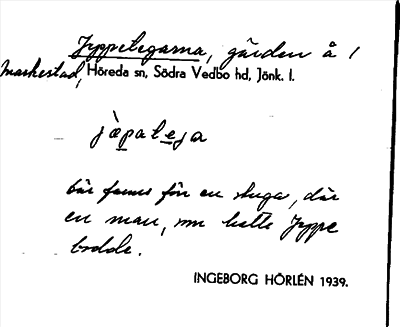 Jyppelegarna, gärden å 1
Markestad, Höreda sn, Södra Vedbo hd, Jönk. l.
här fanns för en stuga, där
en man, som hette Jyppe
bodde.
INGEBORG HÖRLÉN 1939.